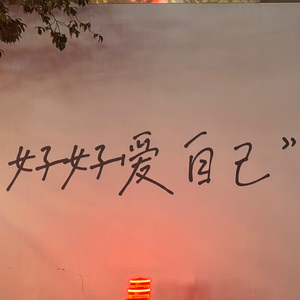 好好爱自己”